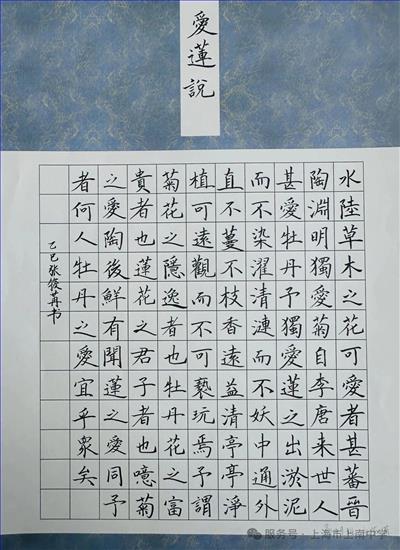 愛蓮說
水陸草木之花可愛者甚蕃晉
陶淵明獨愛菊自李唐来世人
甚愛牡丹予獨愛蓮之出淤泥
而不染濯清漣而不妖中通外
直不蔓不枝香遠益清亭亭淨
植可遠觀而不可褻玩焉予謂
菊花之隱逸者也牡丹花之富
貴者也蓮花之君子者也噫菊
之愛陶後鮮有聞蓮之愛同予
者何人牡丹之愛宜乎衆矣
乙巳张苒书
服务号 · 上海市上南中学